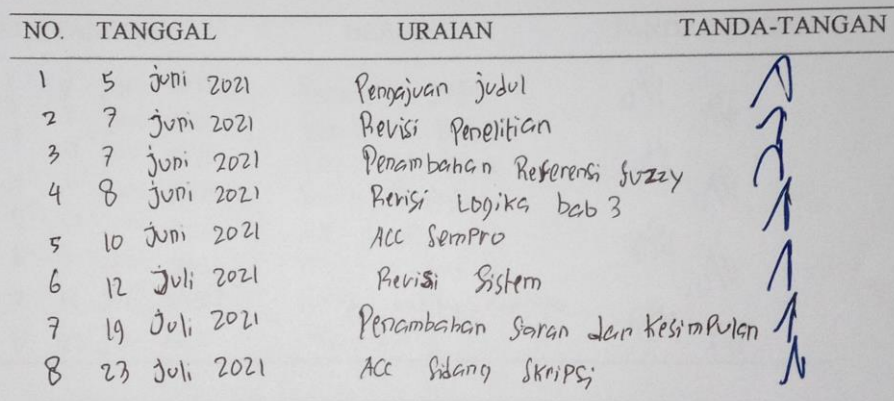 NO. TANGGAL URAIAN TANDA-TANGAN
1 5 juni 2021 Pengajuan judul
2 7 juni 2021 Revisi Penelitian
3 7 juni 2021 Penambahan Referensi fuzzy
4 8 juni 2021 Revisi Logika bab 3
5 10 Juni 2021 ACC SemPro
6 12 Juli 2021 Revisi Sistem
7 19 Juli 2021 Penambahan Saran dan KesimPulan
8 23 Juli 2021 ACC Sidang SkriPsi